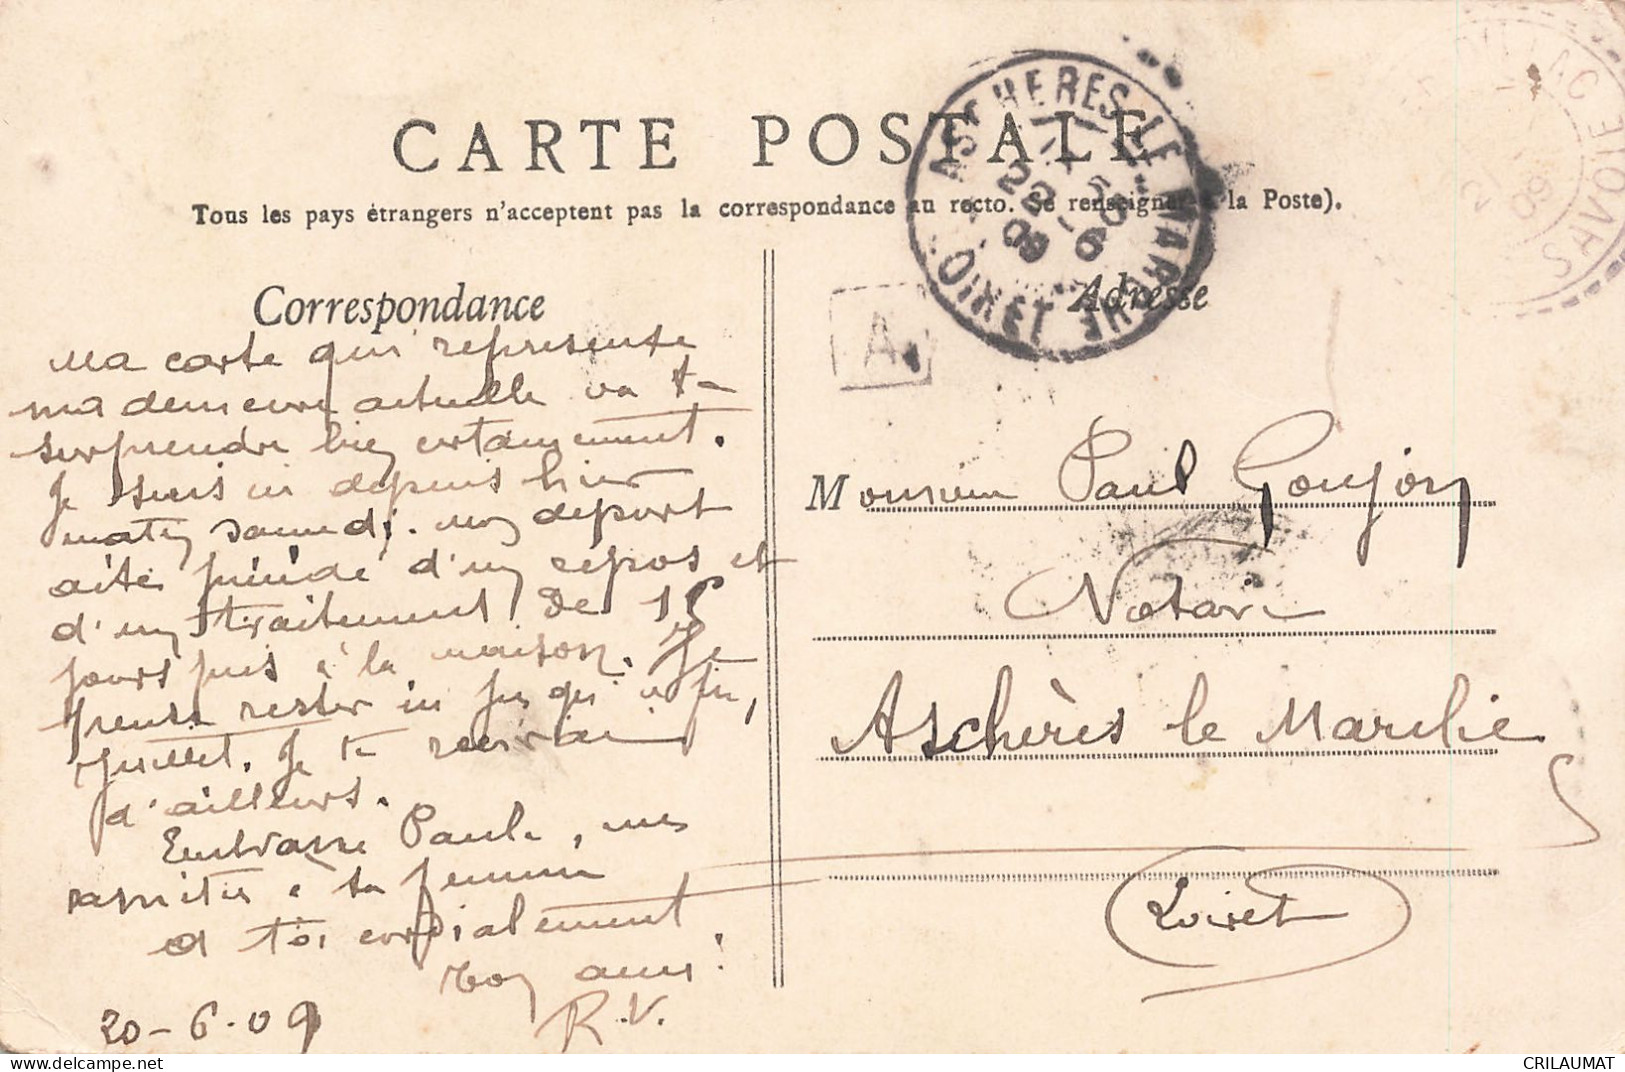 CARTE POSTALE
Tous les pays étrangers n'acceptent pas la correspondance au recto. Se renseigner à la Poste).
Correspondance
Ma carte qui represente
ma demeure actuelle va te
surprendre bien certainement.
Je suis ici depuis hier
matin samedi. Mon depart
a été précédé d'un repos et
d'un traitement de 15
jours pris à la maison. Je
pense rester ici jusqu'à fin,
Juillet. Je te recrirai
d'ailleurs.
Embrasse Paule, mes
amitiés à ta femme
et toi cordialement,
Ton ami:
R.V.
20-6-09
ASCHERES-LE MARCHE
22 - 6
09
LOIRET
A
Adresse
Monsieur Paul Goujon
Notaire
Aschères le Marché
(Loiret)
21
09
SAVOIE
CRILAUMAT